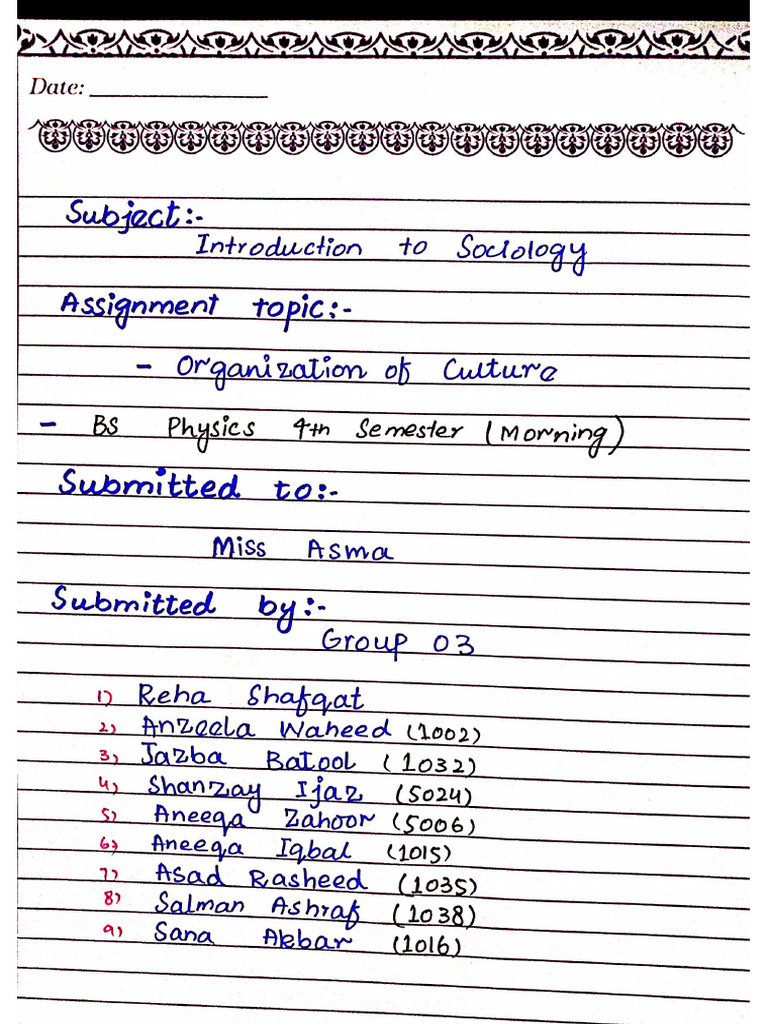 Date:
Subject:-
Introduction to Sociology
Assignment topic:-
- Organization of Culture
- BS Physics 4th Semester (Morning)
Submitted to:-
Miss Asma
Submitted by:-
Group 03
1) Reha Shafqat
2) Anzeela Waheed (1002)
3) Jazba Batool (1032)
4) Shanzay Ijaz (5024)
5) Aneeqa Zahoor (5006)
6) Aneeqa Iqbal (1015)
7) Asad Rasheed (1035)
8) Salman Ashraf (1038)
9) Sana Akbar (1016)